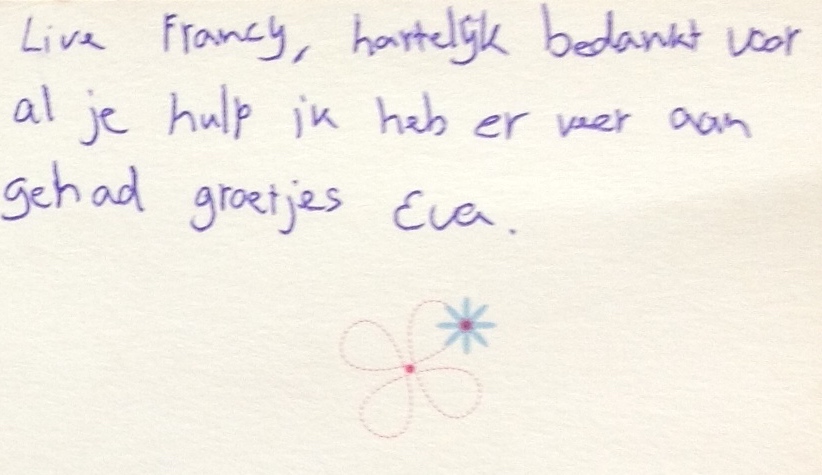 Live Francy, hartelijk bedankt voor
al je hulp ik heb er veer aan
gehad groetjes Eva.